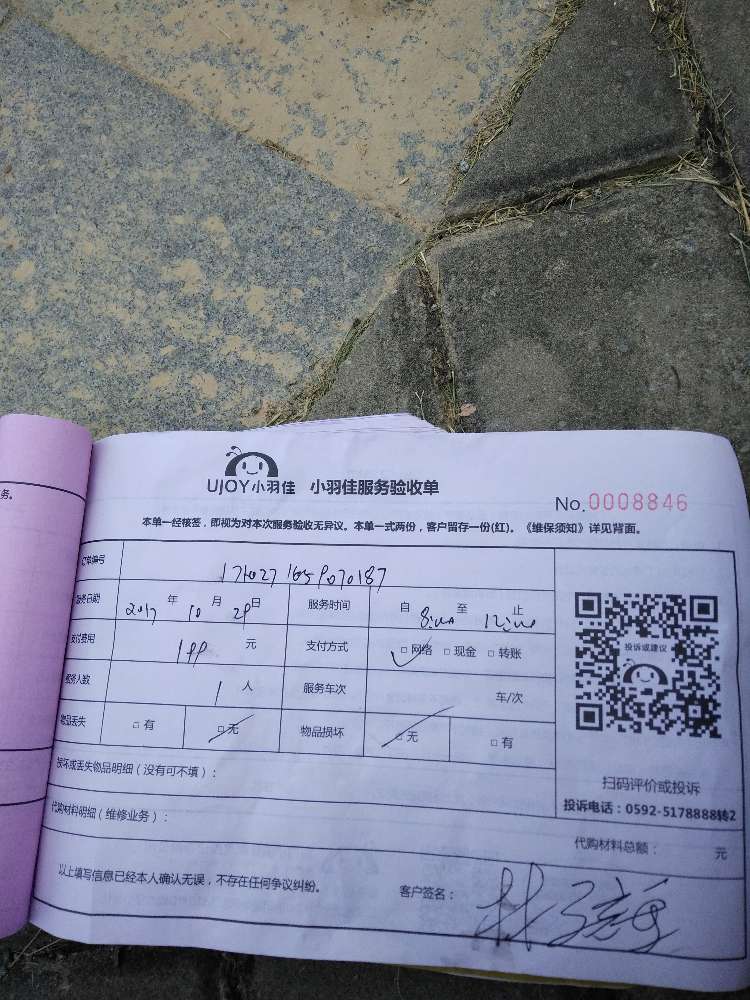 务。
UJOY小羽佳 小羽佳服务验收单
No.0008846
本单一经核签，即视为对本次服务验收无异议。本单一式两份，客户留存一份(红)。《维保须知》详见背面。
订单编号 1710271659070187
服务日期 2017 年 10 月 29 日 服务时间 自 8:00 至 12:00 止
支付费用 199 元 支付方式 □网络 □现金 □转账
服务人数 1 人 服务车次 车/次
物品丢失 □有 □无 物品损坏 □无 □有
投诉或建议
扫码评价或投诉
投诉电话：0592-5178888转2
损坏或丢失物品明细（没有可不填）：
代购材料明细（维修业务）：
代购材料总额： 元
以上填写信息已经本人确认无误，不存在任何争议纠纷。 客户签名：